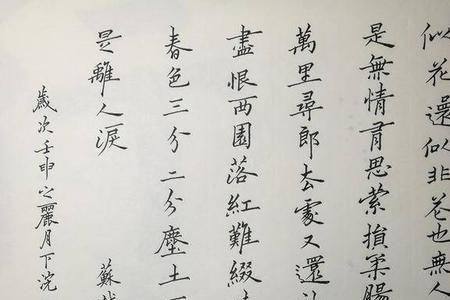 似花還似非花也無人
是無情有思縈損柔腸
萬里尋郎去處又還
盡恨西園落紅難綴
春色三分二分塵土
是離人淚 蘇
歲次壬申之麗月下浣